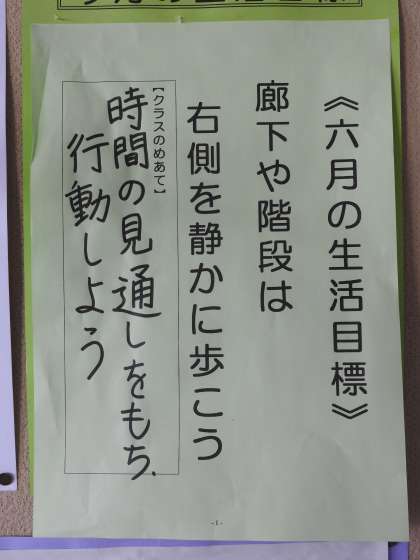 《六月の生活目標》
廊下や階段は
右側を静かに歩こう
【クラスのめあて】
時間の見通しをもち、
行動しよう
-1-